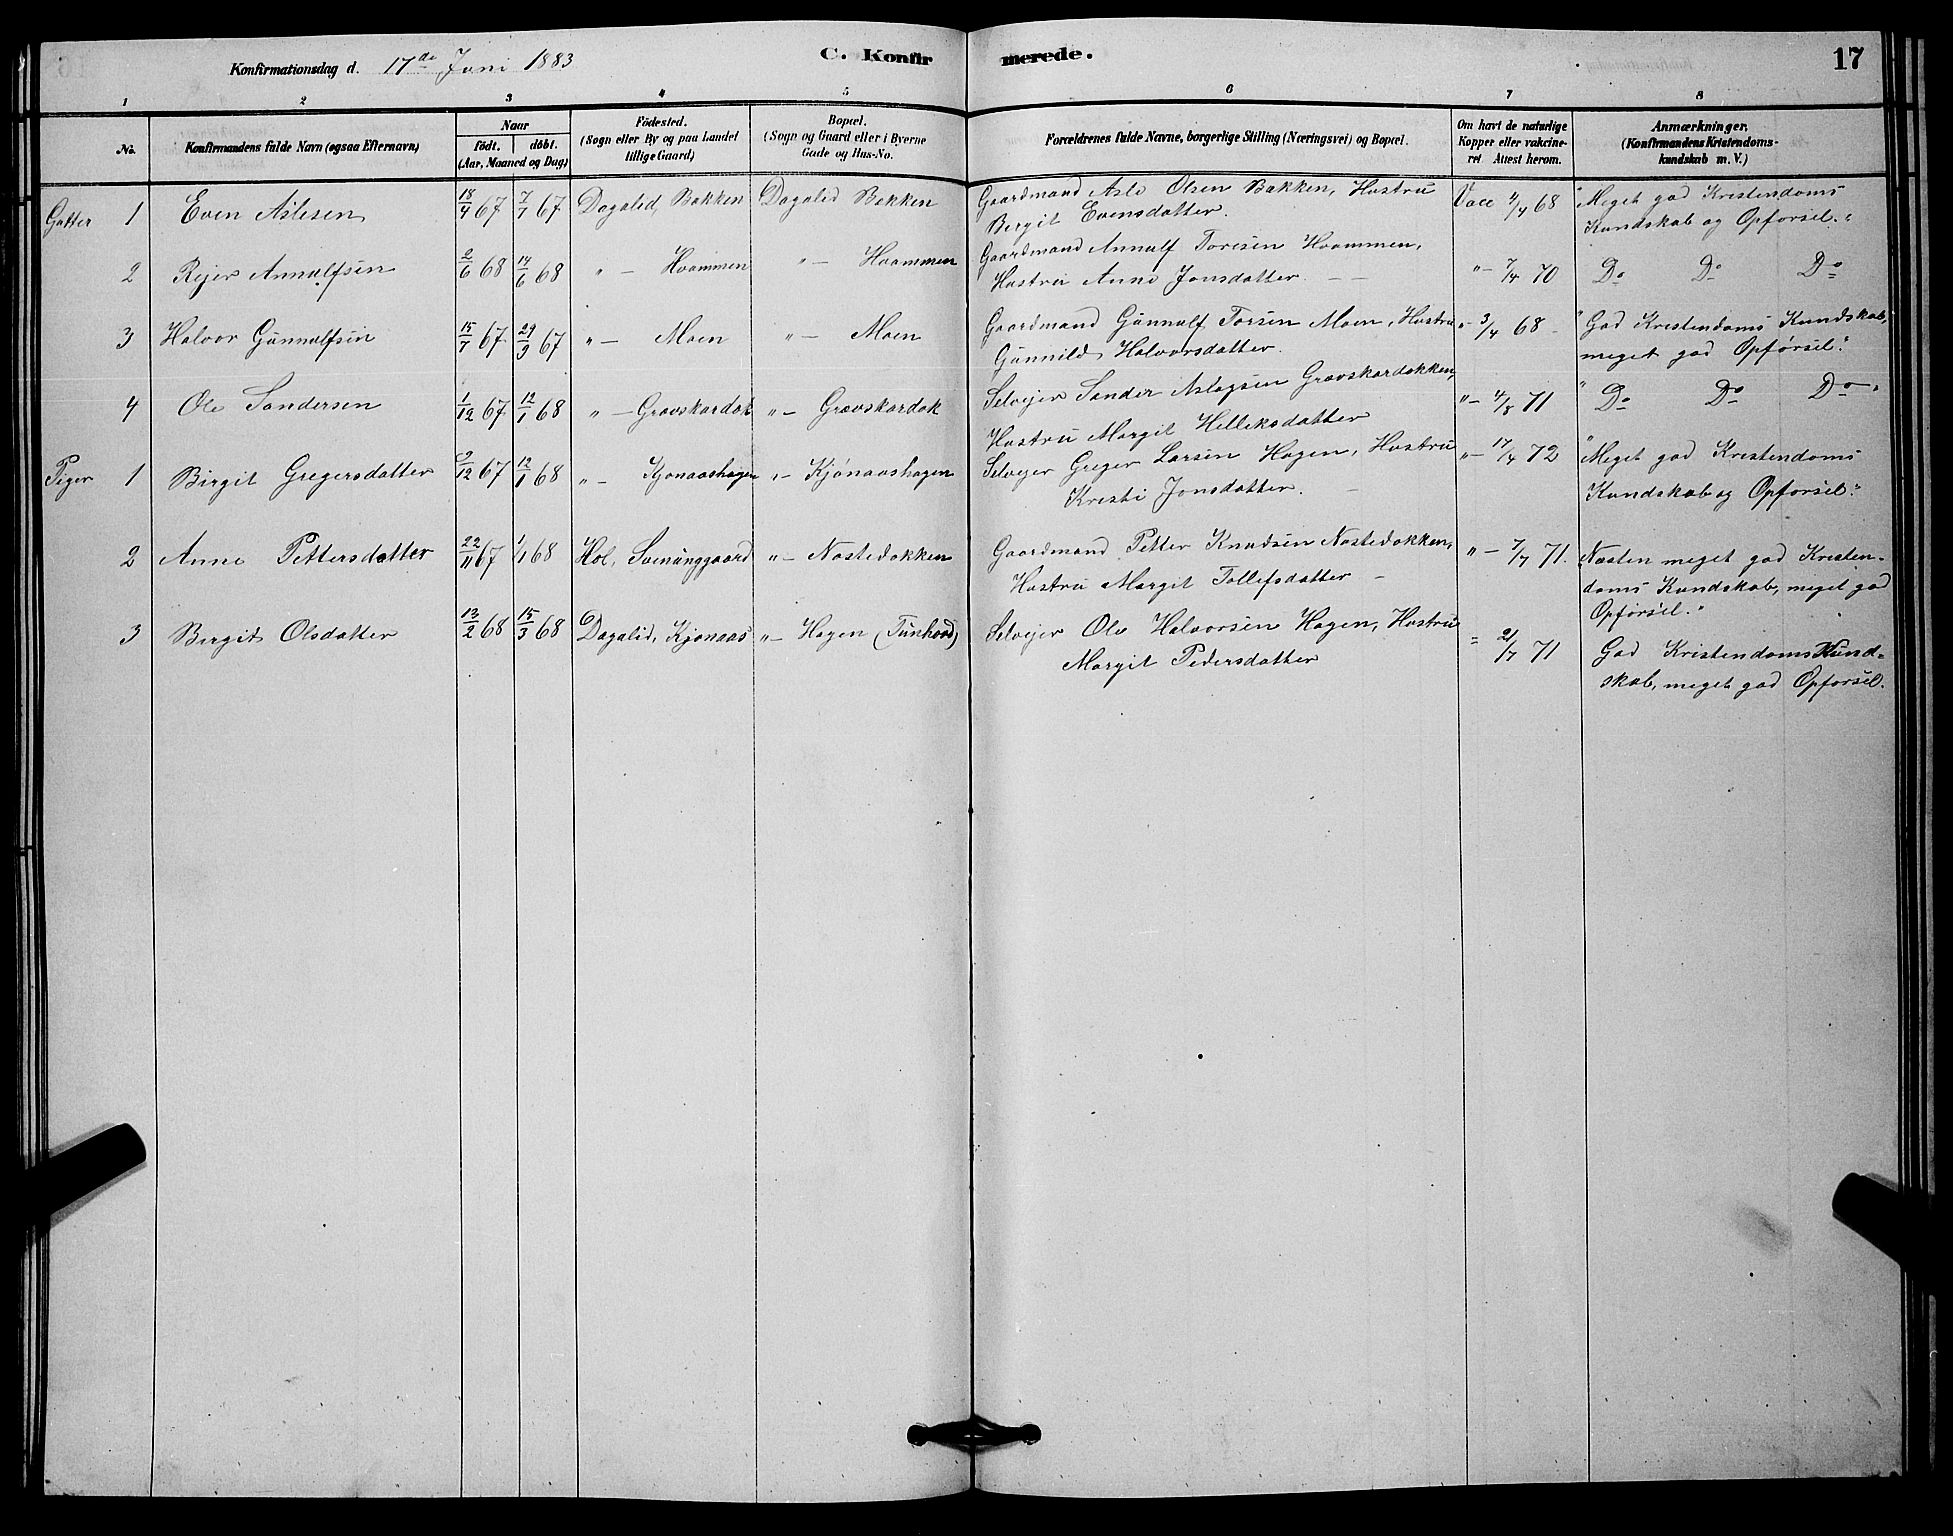 Konfirmationsdag d. 17de Juni 1883
C. Konfirmerede.
17
1 2 3 4 5 6 7 8
No.
Konfirmandens fulde Navn (ogsaa Efternavn)
Naar
födt. döbt.
(Aar, Maaned og Dag)
Födested.
(Sogn eller By og paa Landet
tillige Gaard)
Bopæl.
(Sogn og Gaard eller i Byerne
Gade og Hus-No.
Forældrenes fulde Navne, borgerlige Stilling (Næringsvei) og Bopæl.
Om havt de naturlige
Kopper eller vakcine-
ret. Attest herom.
Anmærkninger.
(Konfirmandens Kristendoms-
kundskab m. V.)
Gutter 1 Even Aslesen 18/4 67 7/7 67 Dagalid, Bakken Dagalid Bakken Gaardmand Asle Olsen Bakken, Hustru Vacc 4/4 68 "Meget god Kristendoms
Bergit Evensdatter. Kundskab og Opførsel."
2 Rejer Annulfsen 2/6 68 14/6 68 " — Hvammen " — Hvammen Gaardmand Annulf Toresen Hvammen,
Hustru Anne Jonsdatter " — 7/4 70 Do Do Do
3 Halvor Gunnulfsen 15/7 67 29/9 67 " — Moen " — Moen Gaardmand Gunnulf Torsen Moen, Hustru " 3/4 68 "God Kristendoms Kundskab,
Gunnild Halvorsdatter. meget god Opførsel."
4 Ole Sandersen 1/12 67 12/1 68 " — Gravskardok " — Gravskardok Selvejer Sander Aslagsen Gravskardokken, " — 4/8 71 " Do Do Do "
Hustru Margit Helleksdatter
Piger 1 Birgit Gregersdatter 9/12 67 12/1 68 " — Kjønaashagen " — Kjønaashagen Selvejer Greger Larsen Hagen, Hustru " — 17/4 72 "Meget god Kristendoms
Kristi Jonsdatter. Kundskab og Opførsel."
2 Anne Pettersdatter 22/11 67 1/1 68 Hol, Svenunggaard " — Nostedokken Gaardmand Petter Knudsen Nostedokken, " — 7/7 71. Næsten meget god Kristen-
Hustru Margit Tollefsdatter doms Kundskab, meget god
Opførsel."
3 Birgit Olsdatter 13/2 68 15/3 68 Dagalid, Kjønaas " — Hagen (Tunhovd) Selvejer Ole Halvorsen Hagen, Hustru
Margit Pedersdatter 21/7 71 God Kristendoms Kund-
skab, meget god Opførsel.